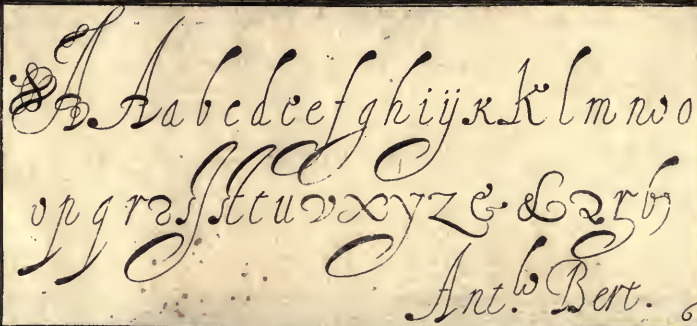 A A a b c d e e f g h i ij k k l m n o o
v p q r r s ſ ſt t t u v x y z & & 
Ant.º Bert.